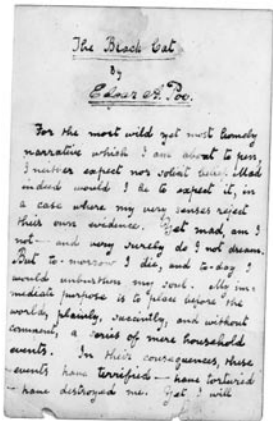 The Black Cat
By
Edgar A. Poe.
For the most wild yet most homely
narrative which I am about to pen,
I neither expect nor solicit belief. Mad
indeed would I be to expect it, in
a case where my very senses reject
their own evidence. Yet mad, am I
not — and very surely do I not dream.
But to-morrow I die, and to-day I
would unburthen my soul. My im-
mediate purpose is to place before the
world, plainly, succinctly, and without
comment, a series of mere household
events. In their consequences, these
events have terrified — have tortured
— have destroyed me. Yet I will